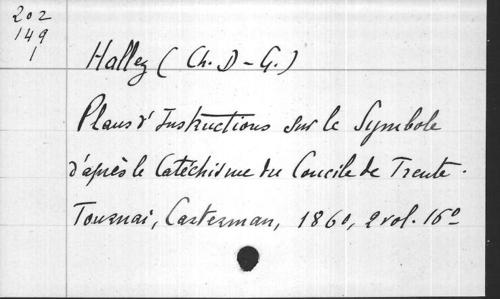 202
149
1
Hallez (Ch. D-G.)
Plans d'Instructions sur le Symbole
d'après le Catéchisme du Concile de Trente.
Tournai, Casterman, 1860, 2 vol. 16º